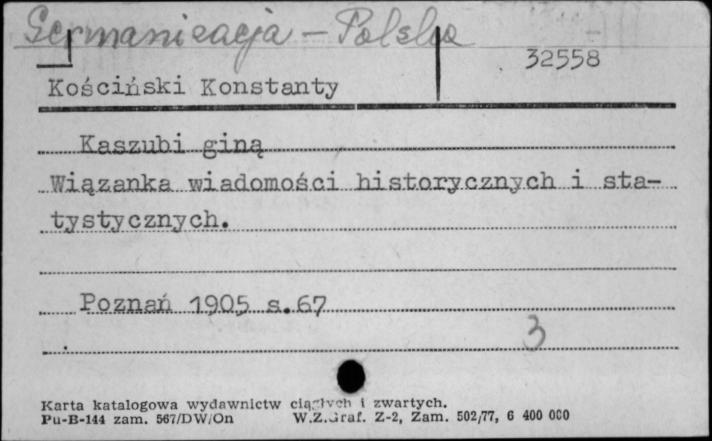 Germanizacja - Polska
32558
Kościński Konstanty
Kaszubi giną
Wiązanka wiadomości historycznych i sta-
tystycznych.
Poznań 1905 s.67
3
Karta katalogowa wydawnictw ciągłych i zwartych.
Pu-B-144 zam. 567/DW/On W.Z.Graf. Z-2, Zam. 502/77, 6 400 000